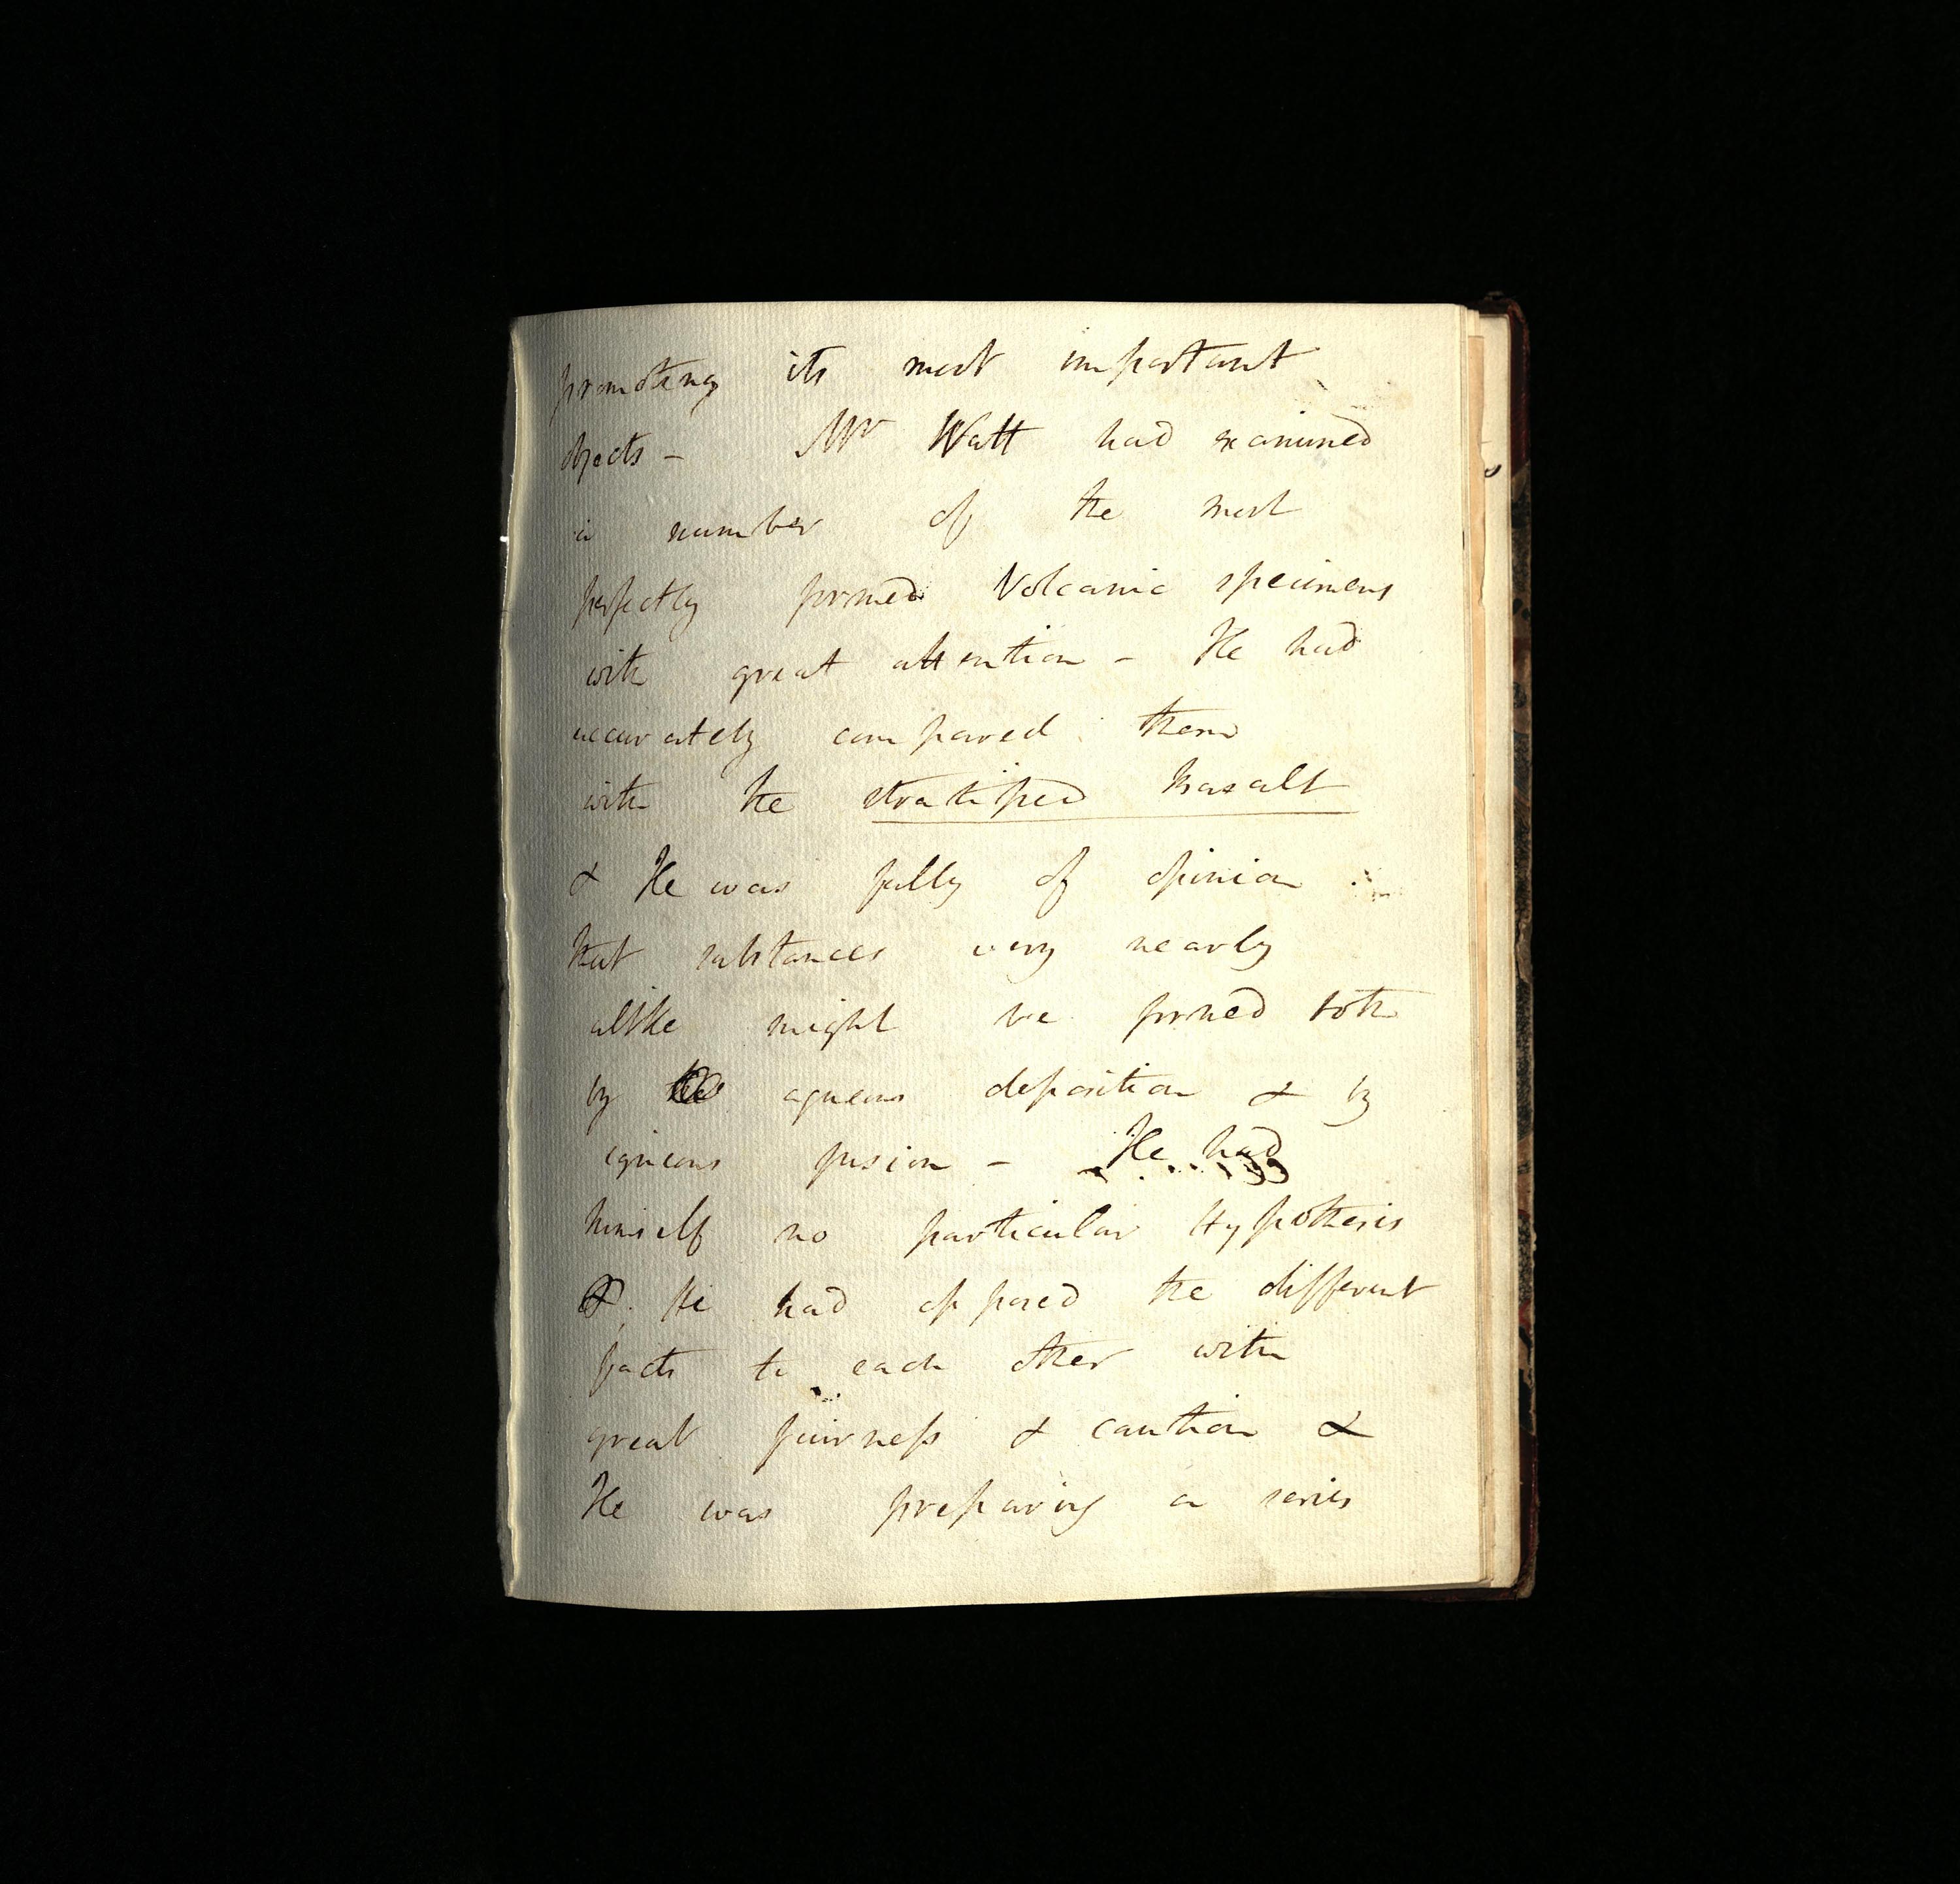 promoting its most important
objects - Mr Watt had examined
a number of the most
perfectly formed Volcanic specimens
with great attention - He had
accurately compared them
with the stratified Basalt
& He was fully of opinion
that substances very nearly
alike might be formed both
by the aqueous deposition & by
igneous fusion - He had
himself no particular Hypothesis
&. He had opposed the different
facts to each other with
great fairness & caution &
He was preparing a series